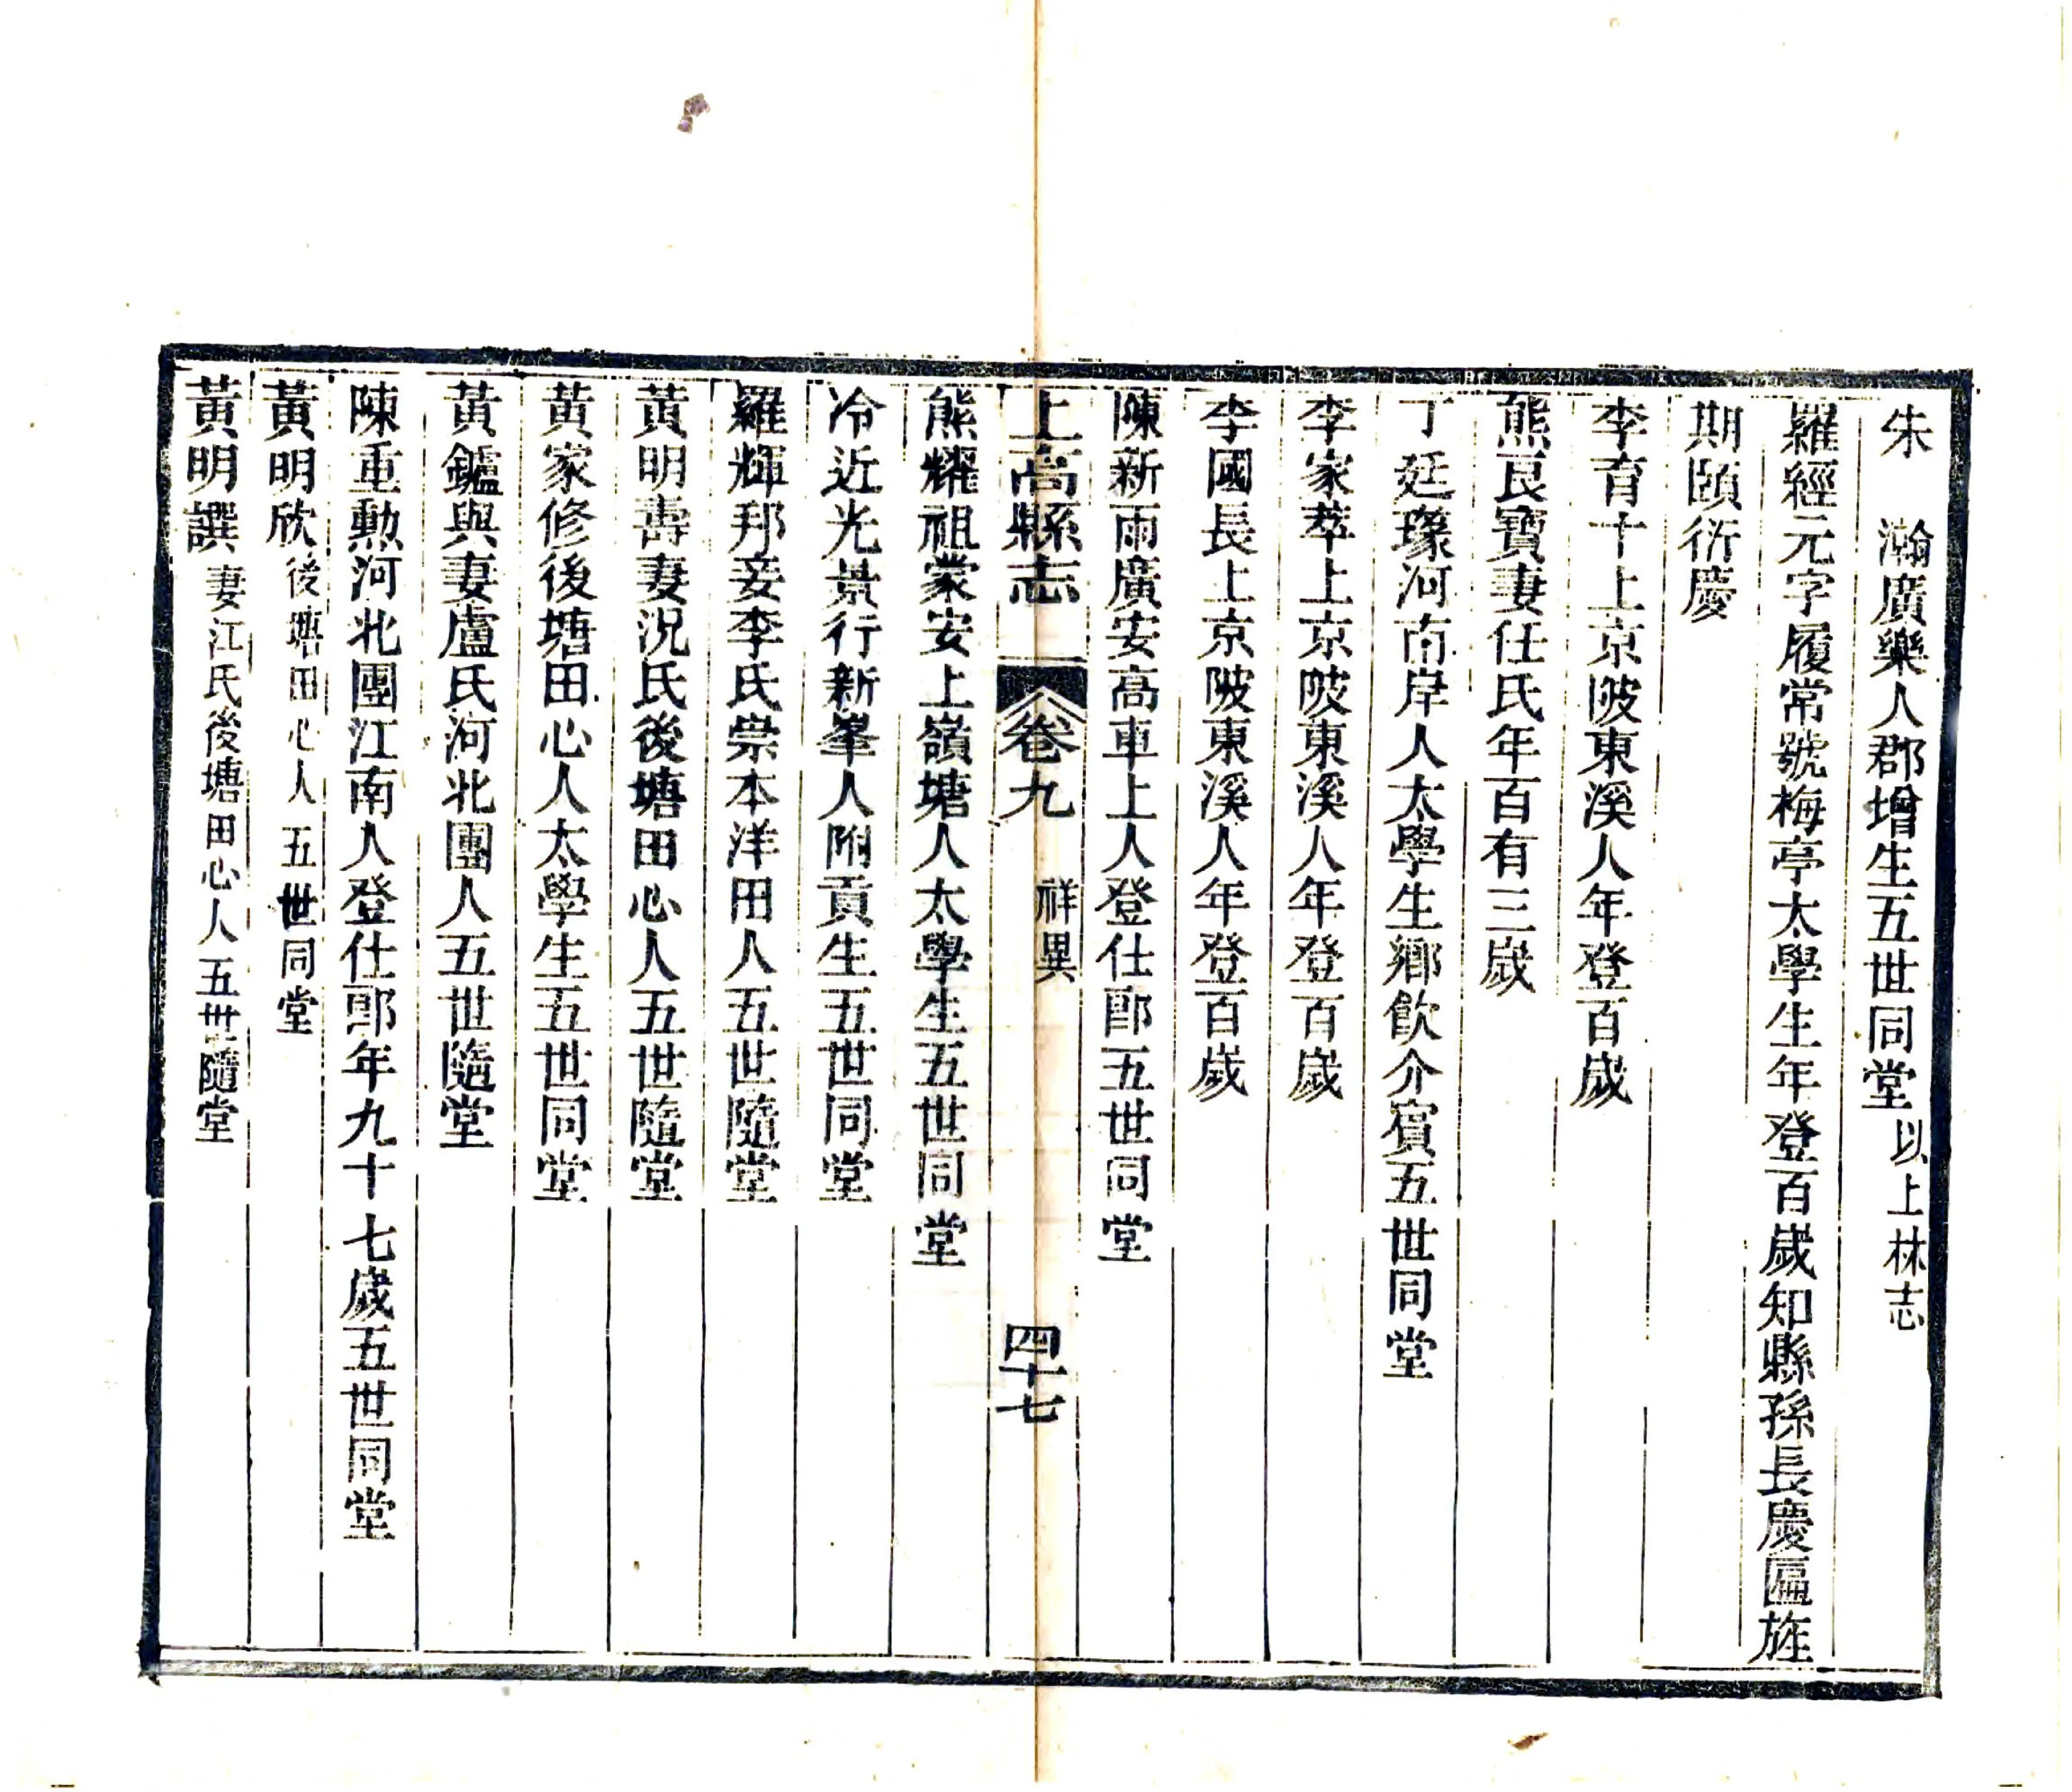 朱　瀚廣樂人郡增生五世同堂以上林志
羅經元字履常號梅亭太學生年登百歲知縣孫長慶匾旌
期頤衍慶
李育十上京陂東溪人年登百歲
熊良寶妻任氏年百有三歲
丁廷瑑河南岸人太學生鄉飲介賓五世同堂
李家萃上京陂東溪人年登百歲
李國長上京陂東溪人年登百歲
陳新雨廣安高車上人登仕郎五世同堂
上高縣志　卷九　祥異　四十七
熊耀祖蒙安上嶺塘人太學生五世同堂
冷近光景行新峯人附貢生五世同堂
羅輝邦妾李氏崇本洋田人五世隨堂
黃明壽妻況氏後塘田心人五世隨堂
黃家修後塘田心人太學生五世同堂
黃鑪與妻盧氏河北團人五世隨堂
陳重勳河北團江南人登仕郎年九十七歲五世同堂
黃明欣後塘田心人五世同堂
黃明譔妻江氏後塘田心人五世隨堂